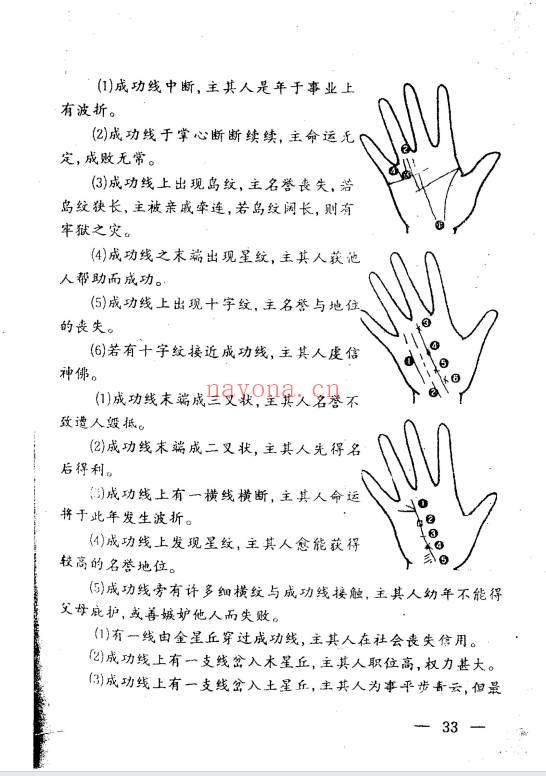 (1)成功线中断,主其人是年于事业上
有波折。
(2)成功线于掌心断断续续,主命运无
定,成败无常。
(3)成功线上出现岛纹,主名誉丧失,若
岛纹狭长,主被亲戚牵连,若岛纹阔长,则有
牢狱之灾。
(4)成功线之末端出现星纹,主其人获他
人帮助而成功。
(5)成功线上出现十字纹,主名誉与地位
的丧失。
(6)若有十字纹接近成功线,主其人虔信
神佛。
nayona.cn
(1)成功线末端成三叉状,主其人名誉不
致遭人毁抵。
(2)成功线末端成二叉状,主其人先得名
后得利。
(3)成功线上有一横线横断,主其人命运
将于此年发生波折。
(4)成功线上发现星纹,主其人愈能获得
较高的名誉地位。
(5)成功线旁有许多细横纹与成功线接触,主其人幼年不能得
父母庇护,或善嫉妒他人而失败。
(1)有一线由金星丘穿过成功线,主其人在社会丧失信用。
(2)成功线上有一支线岔入木星丘,主其人职位高,权力甚大。
(3)成功线上有一支线岔入土星丘,主其人为事平步青云,但最
— 33 —